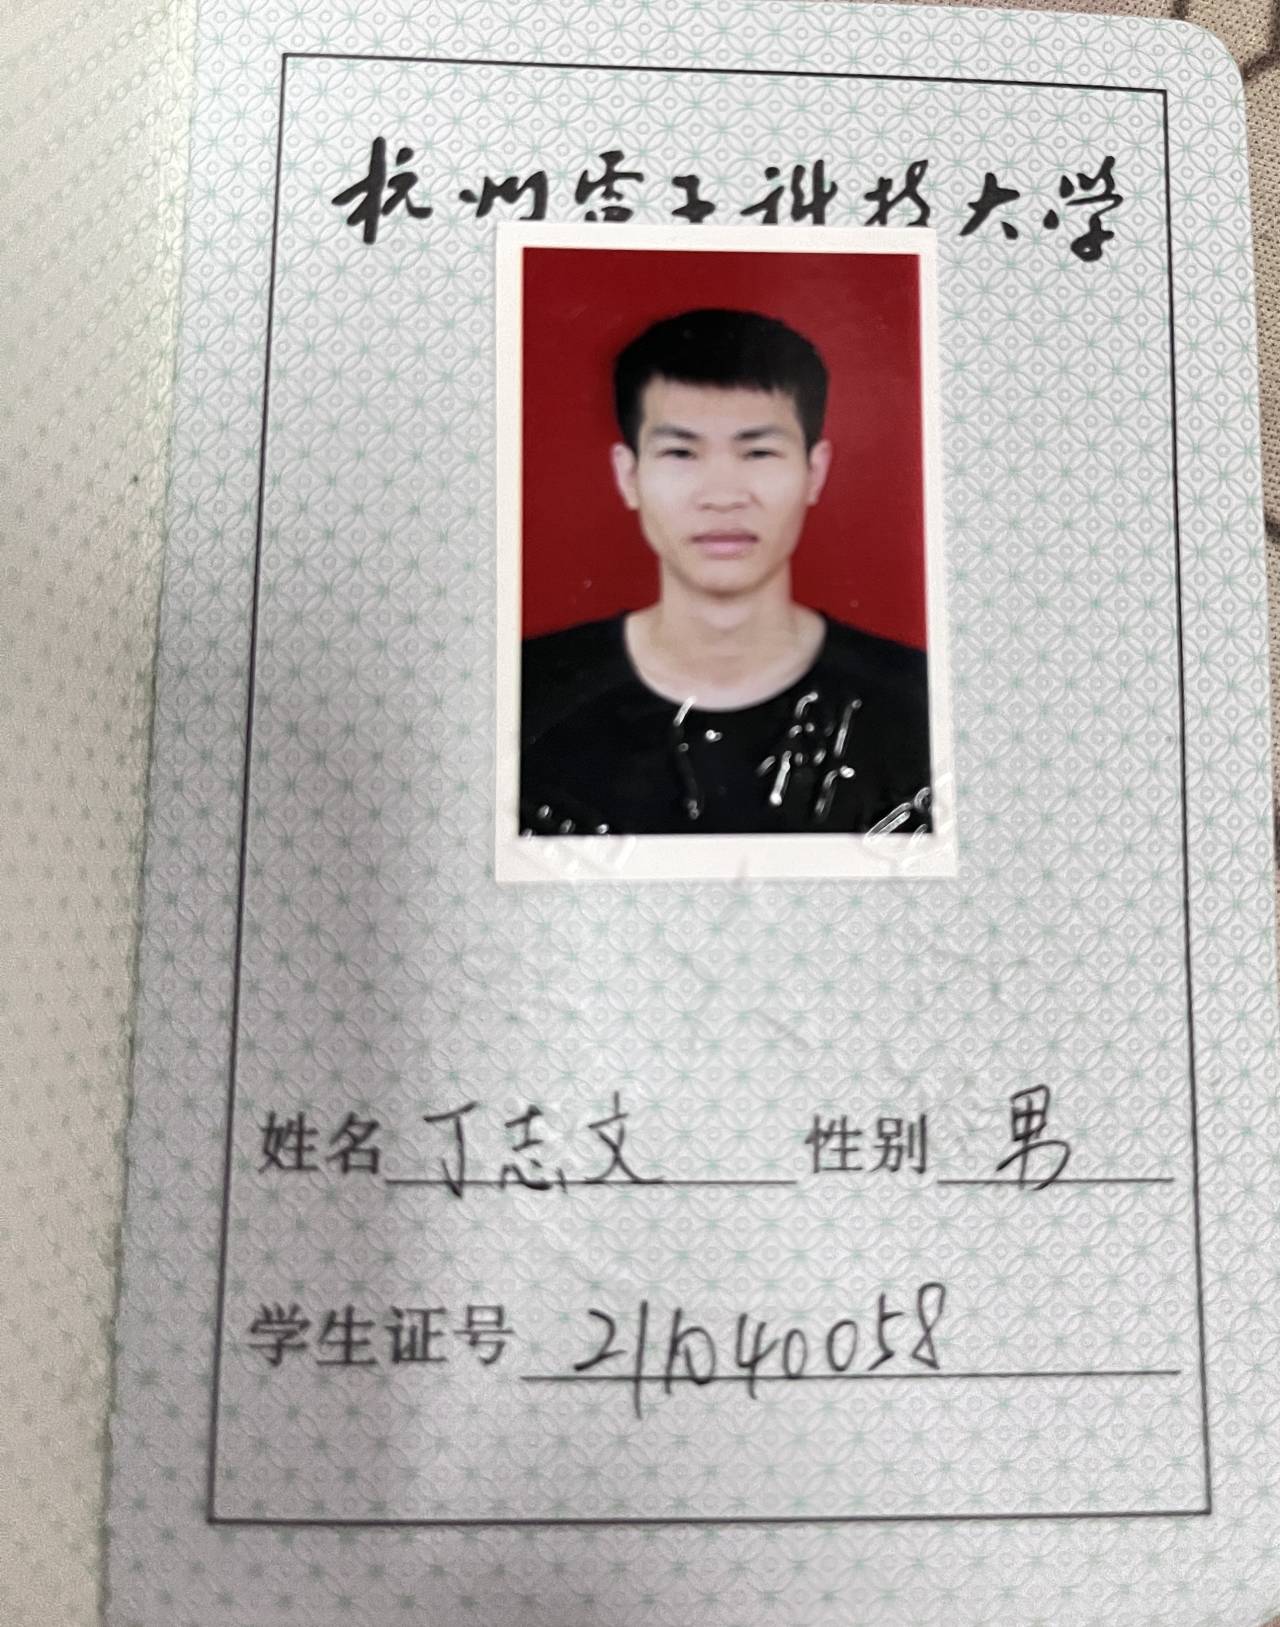 杭州电子科技大学
姓名 丁志文 性别 男
学生证号 211040058